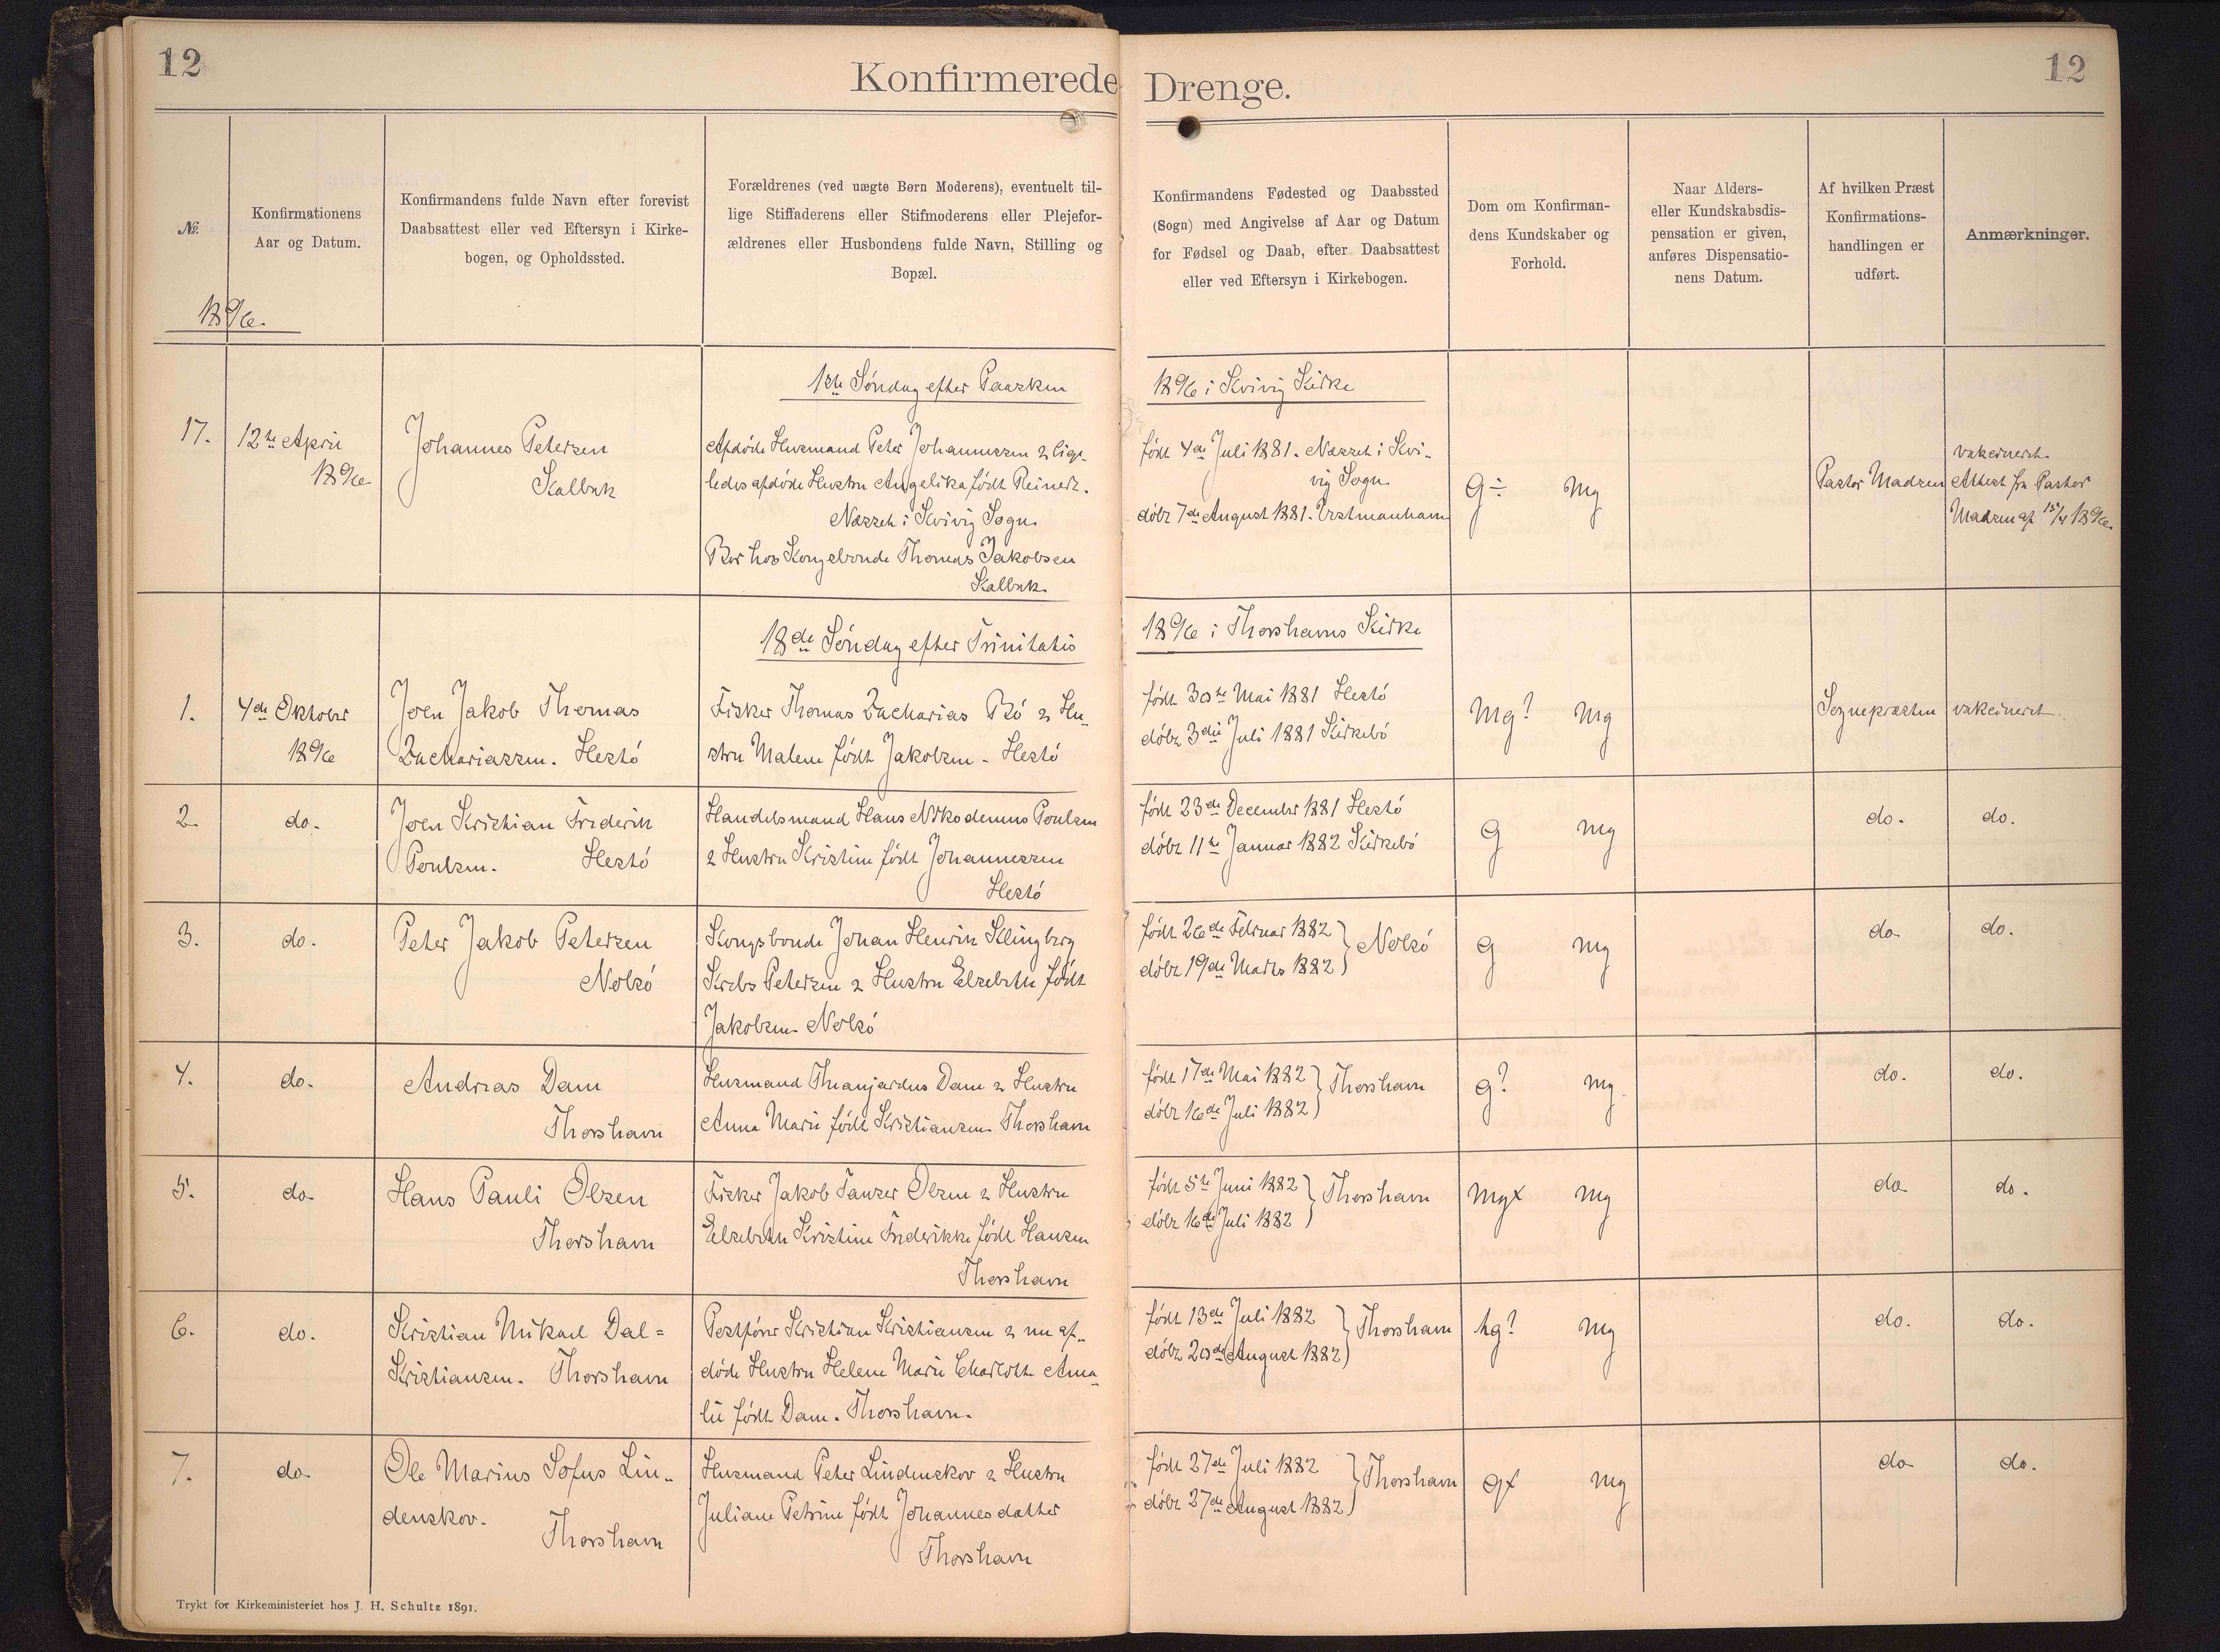 12
Konfirmerede Drenge.
12
№.
Konfirmationens
Aar og Datum.
Konfirmandens fulde Navn efter forevist
Daabsattest eller ved Eftersyn i Kirke-
bogen, og Opholdssted.
Forældrenes (ved uægte Børn Moderens), eventuelt til-
lige Stiffaderens eller Stifmoderens eller Plejefor-
ældrenes eller Husbondens fulde Navn, Stilling og
Bopæl.
Konfirmandens Fødested og Daabssted
(Sogn) med Angivelse af Aar og Datum
for Fødsel og Daab, efter Daabsattest
eller ved Eftersyn i Kirkebogen.
Dom om Konfirman-
dens Kundskaber og
Forhold.
Naar Alders-
eller Kundskabsdis-
pensation er given,
anføres Dispensatio-
nens Datum.
Af hvilken Præst
Konfirmations-
handlingen er
udført.
Anmærkninger.
1896.
1ste Søndag efter Paasken
1896 i Kvivig Kirke
17.
12te April
1896
Johannes Petersen
Kalbak
Afdøde Husmand Peter Johannessen & lige-
ledes afdøde Hustru Angelika født Reinert.
Næsset i Kvivig Sogn.
Bor hos Kongsbonde Thomas Jakobsen
Kalbak.
født 4de Juli 1881. Næsset i Kvi-
vig Sogn.
døbt 7de August 1881. Vestmanhavn
G÷ Mg
Pastor Madsen
vakcineret.
Attest fra Pastor
Madsen af 15/4 1896.
18de Søndag efter Trinitatis
1896 i Thorshavns Kirke
1.
4de Oktober
1896
Joen Jakob Thomas
Zachariassen. Hestø
Fisker Thomas Zacharias Bø & Hu-
stru Malene født Jakobsen - Hestø
født 30te Mai 1881 Hestø
døbt 3die Juli 1881 Kirkebø
Mg? Mg
Sognepræsten
vakcineret.
2.
do.
Joen Kristian Frederik
Poulsen. Hestø
Handelsmand Hans Nikodemus Poulsen
& Hustru Kristine født Johannessen
Hestø
født 23de December 1881 Hestø
døbt 11te Januar 1882 Kirkebø
G mg
do.
do.
3.
do.
Peter Jakob Petersen
Nolsø
Kongsbonde Johan Henrik Klingberg
Krebs Petersen & Hustru Elsebeth født
Jakobsen. Nolsø
født 26de Februar 1882
døbt 19de Marts 1882 } Nolsø
G mg
do
do.
4.
do.
Andreas Dam
Thorshavn
Husmand Dam & Hustru
Anna Marie født Kristiansen. Thorshavn
født 17de Mai 1882
døbt 16de Juli 1882 } Thorshavn
g? mg.
do.
do.
5.
do
Hans Pauli Olsen
Thorshavn
Fisker Jakob Olsen & Hustru
Elsebeth Kristine Frederikke født Hansen
Thorshavn
født 5te Juni 1882
døbt 16de Juli 1882 } Thorshavn
mgx mg
do
do.
6.
do.
Kristian Mikael Dal-
Kristiansen. Thorshavn
Postfører Kristian Kristiansen & nu af-
døde Hustru Helene Marie Charlotte Ama-
lie født Dam. Thorshavn.
født 13de Juli 1882
døbt 20de August 1882 } Thorshavn
tg? mg
do.
do.
7.
do
Ole Marius Sofus Lin-
denskov.
Thorshavn
Husmand Peter Lindenskov & Hustru
Juliane Petrine født Johannesdatter
Thorshavn
født 27de Juli 1882
døbt 27de August 1882 } Thorshavn
gx mg
do
do.
Trykt for Kirkeministeriet hos J. H. Schultz 1891.